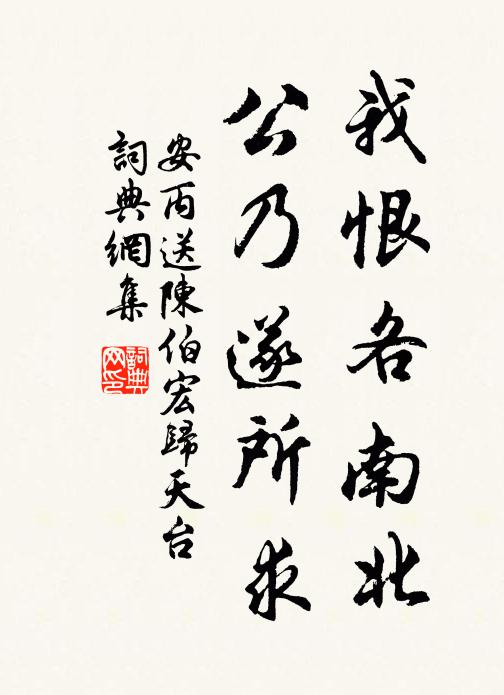 我恨各南北
公乃遂所求
安丙送陳伯宏歸天台
詞典網集
詞典网印